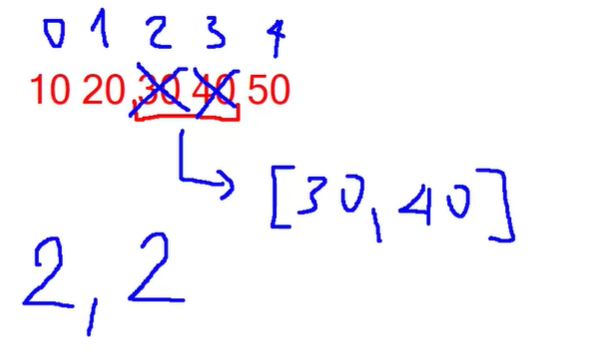 0 1 2 3 4
10 20 30 40 50
[30, 40]
2, 2